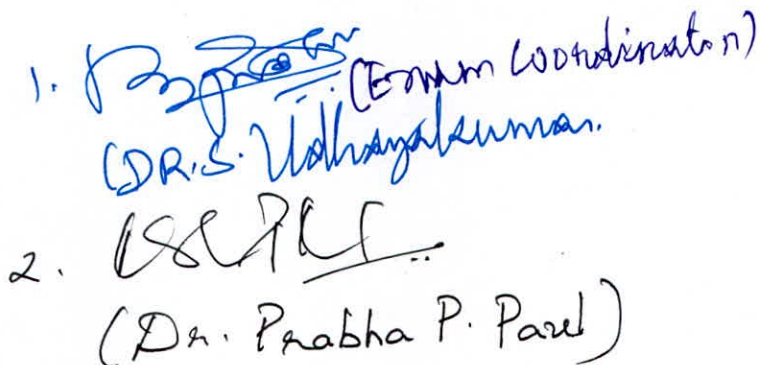 1. (Exam Coordinator)
(DR.S. Udhayakumar.
2.
(Dr. Prabha P. Paul)